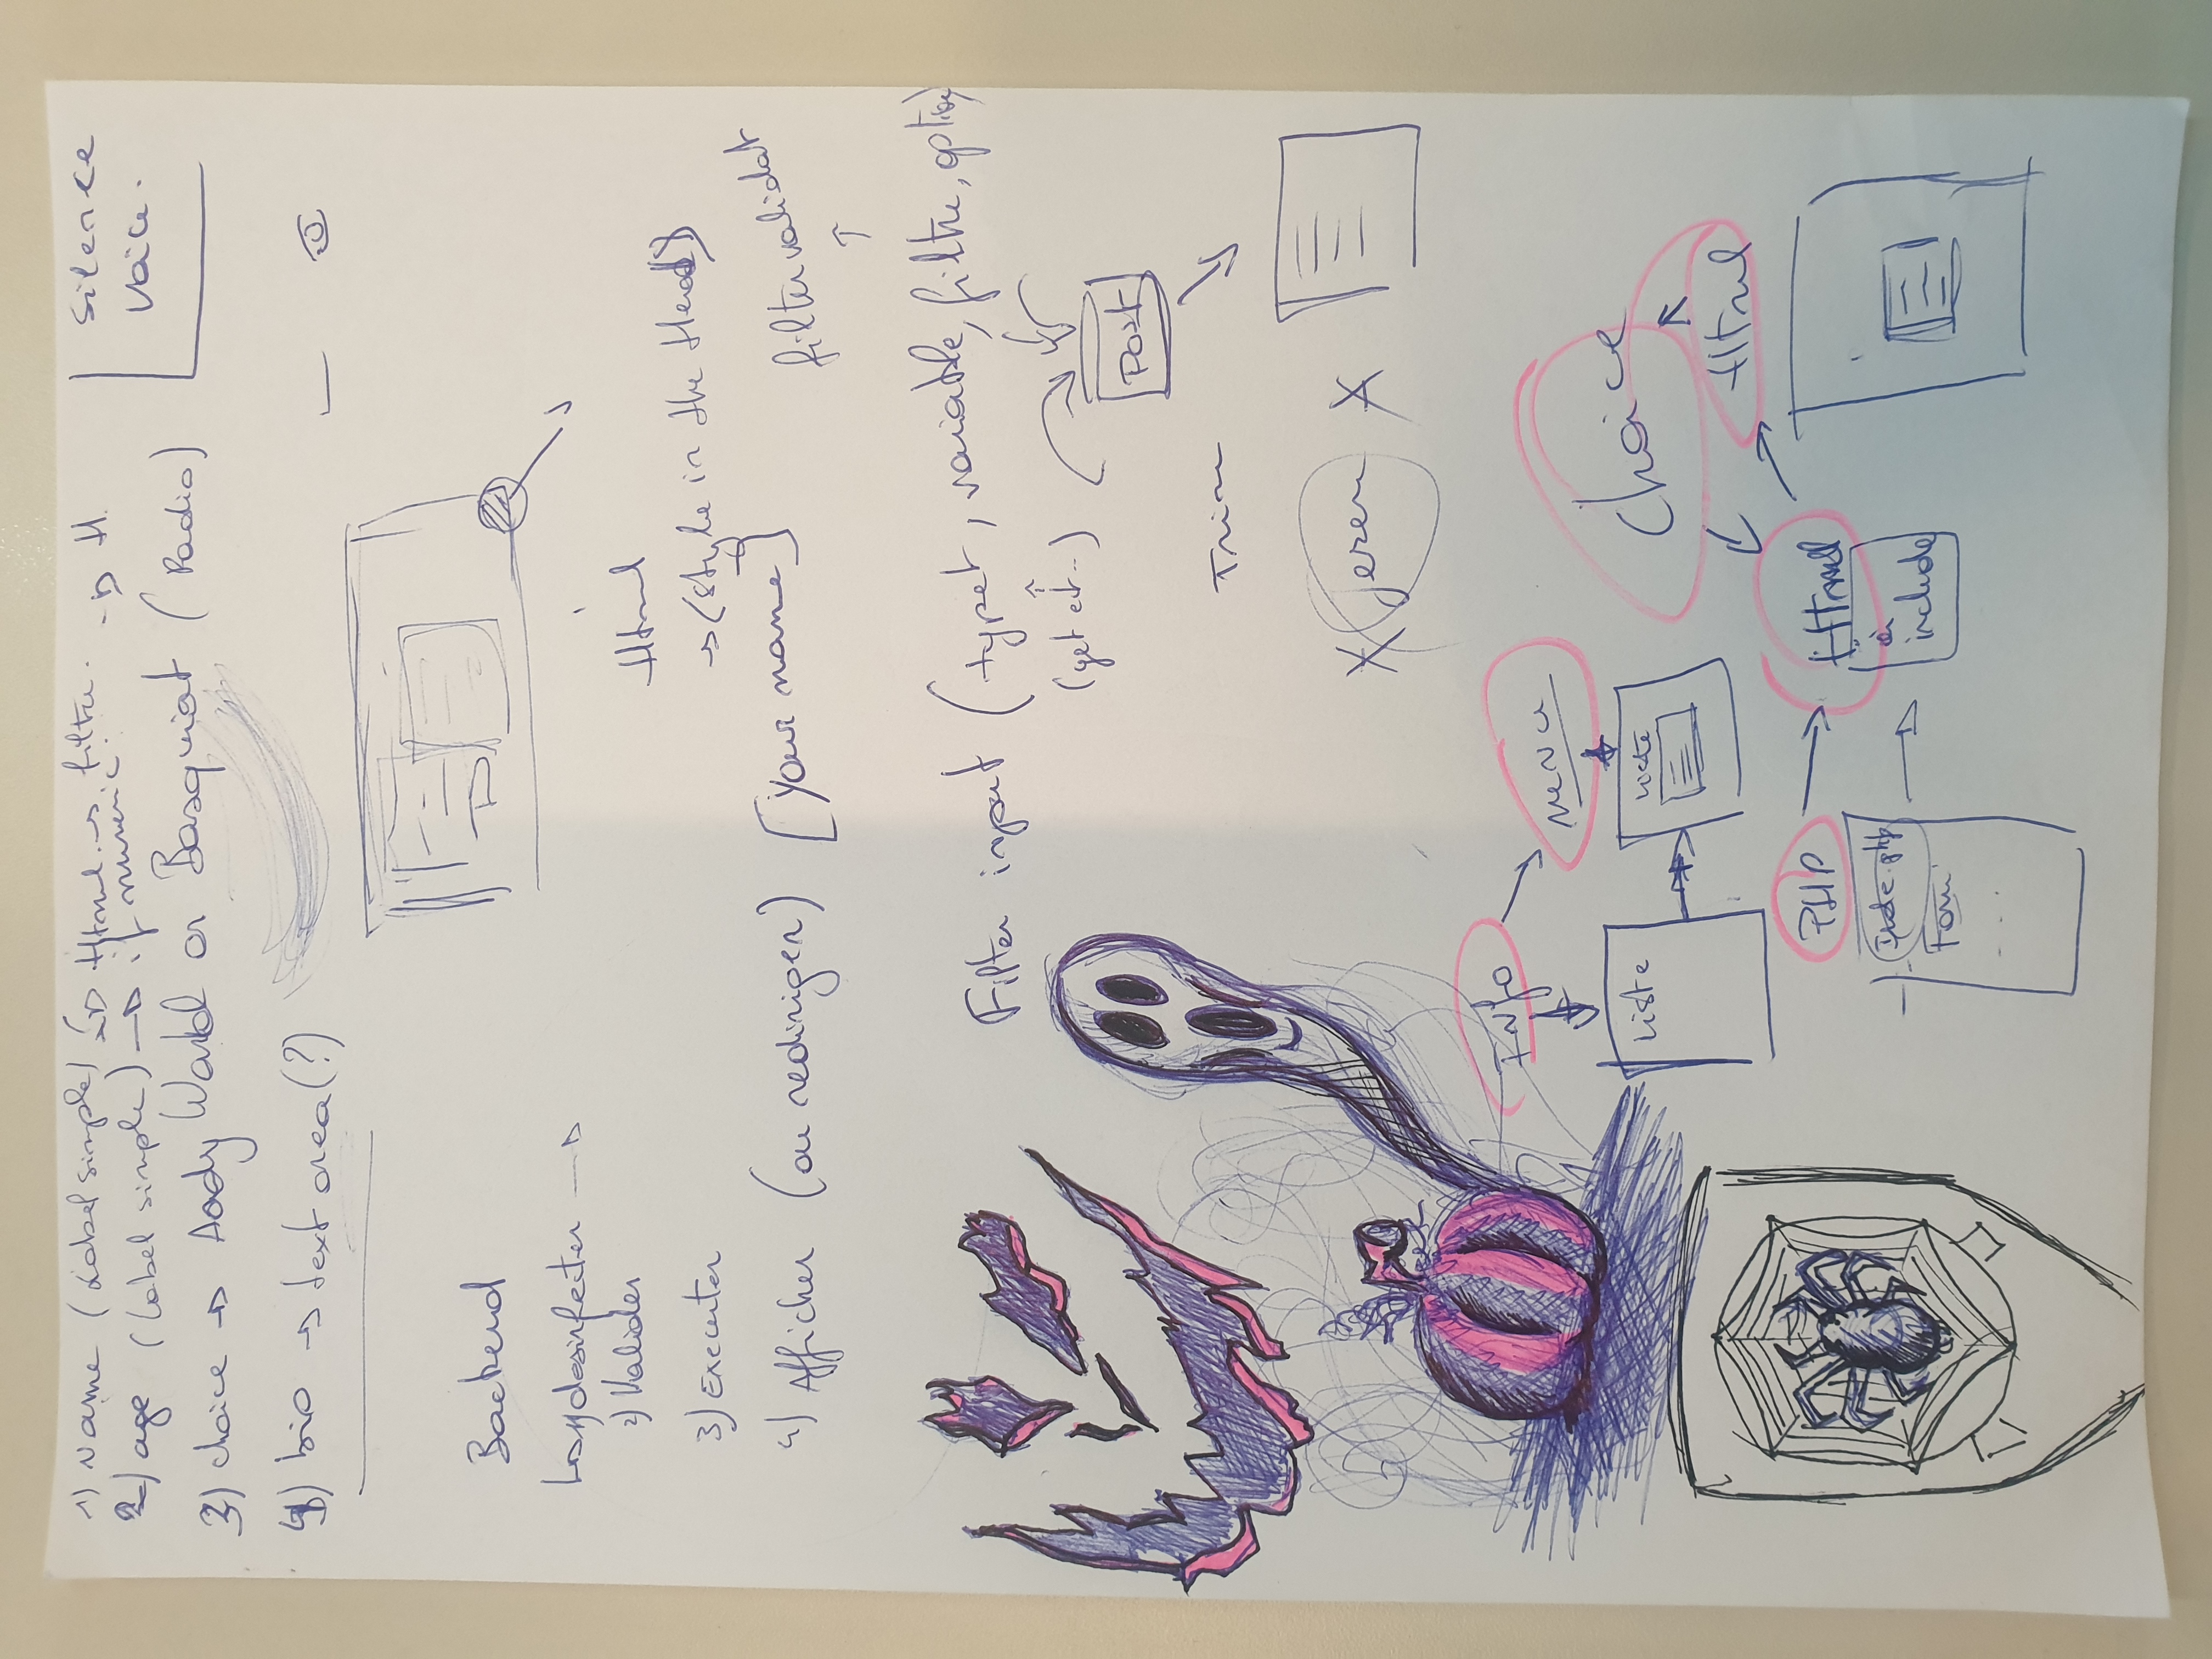 1) Name (Label simple) → Html → filtre. → H.
2) age (label simple) → if numeric
3) choice → Andy Warhol or Basquiat (Radio)
4) bio → text area (?)
Silence
Voice.
Backend
↳ 1) desinfecter →
2) Valider
3) Executer
4) Afficher (ou rediriger) [Your name]
Html
→ (style in the Head)
filter validat
↑
Filter input (type, variable, filtre, option)
↑
(get ect..)
Post
Trim
X Jerem X
Info
menu
Liste
Liste
Choice
Html
PHP
Html
Form
à
include
...